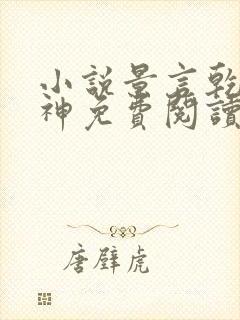 小說景言乾
神免費閱讀
唐璧虎